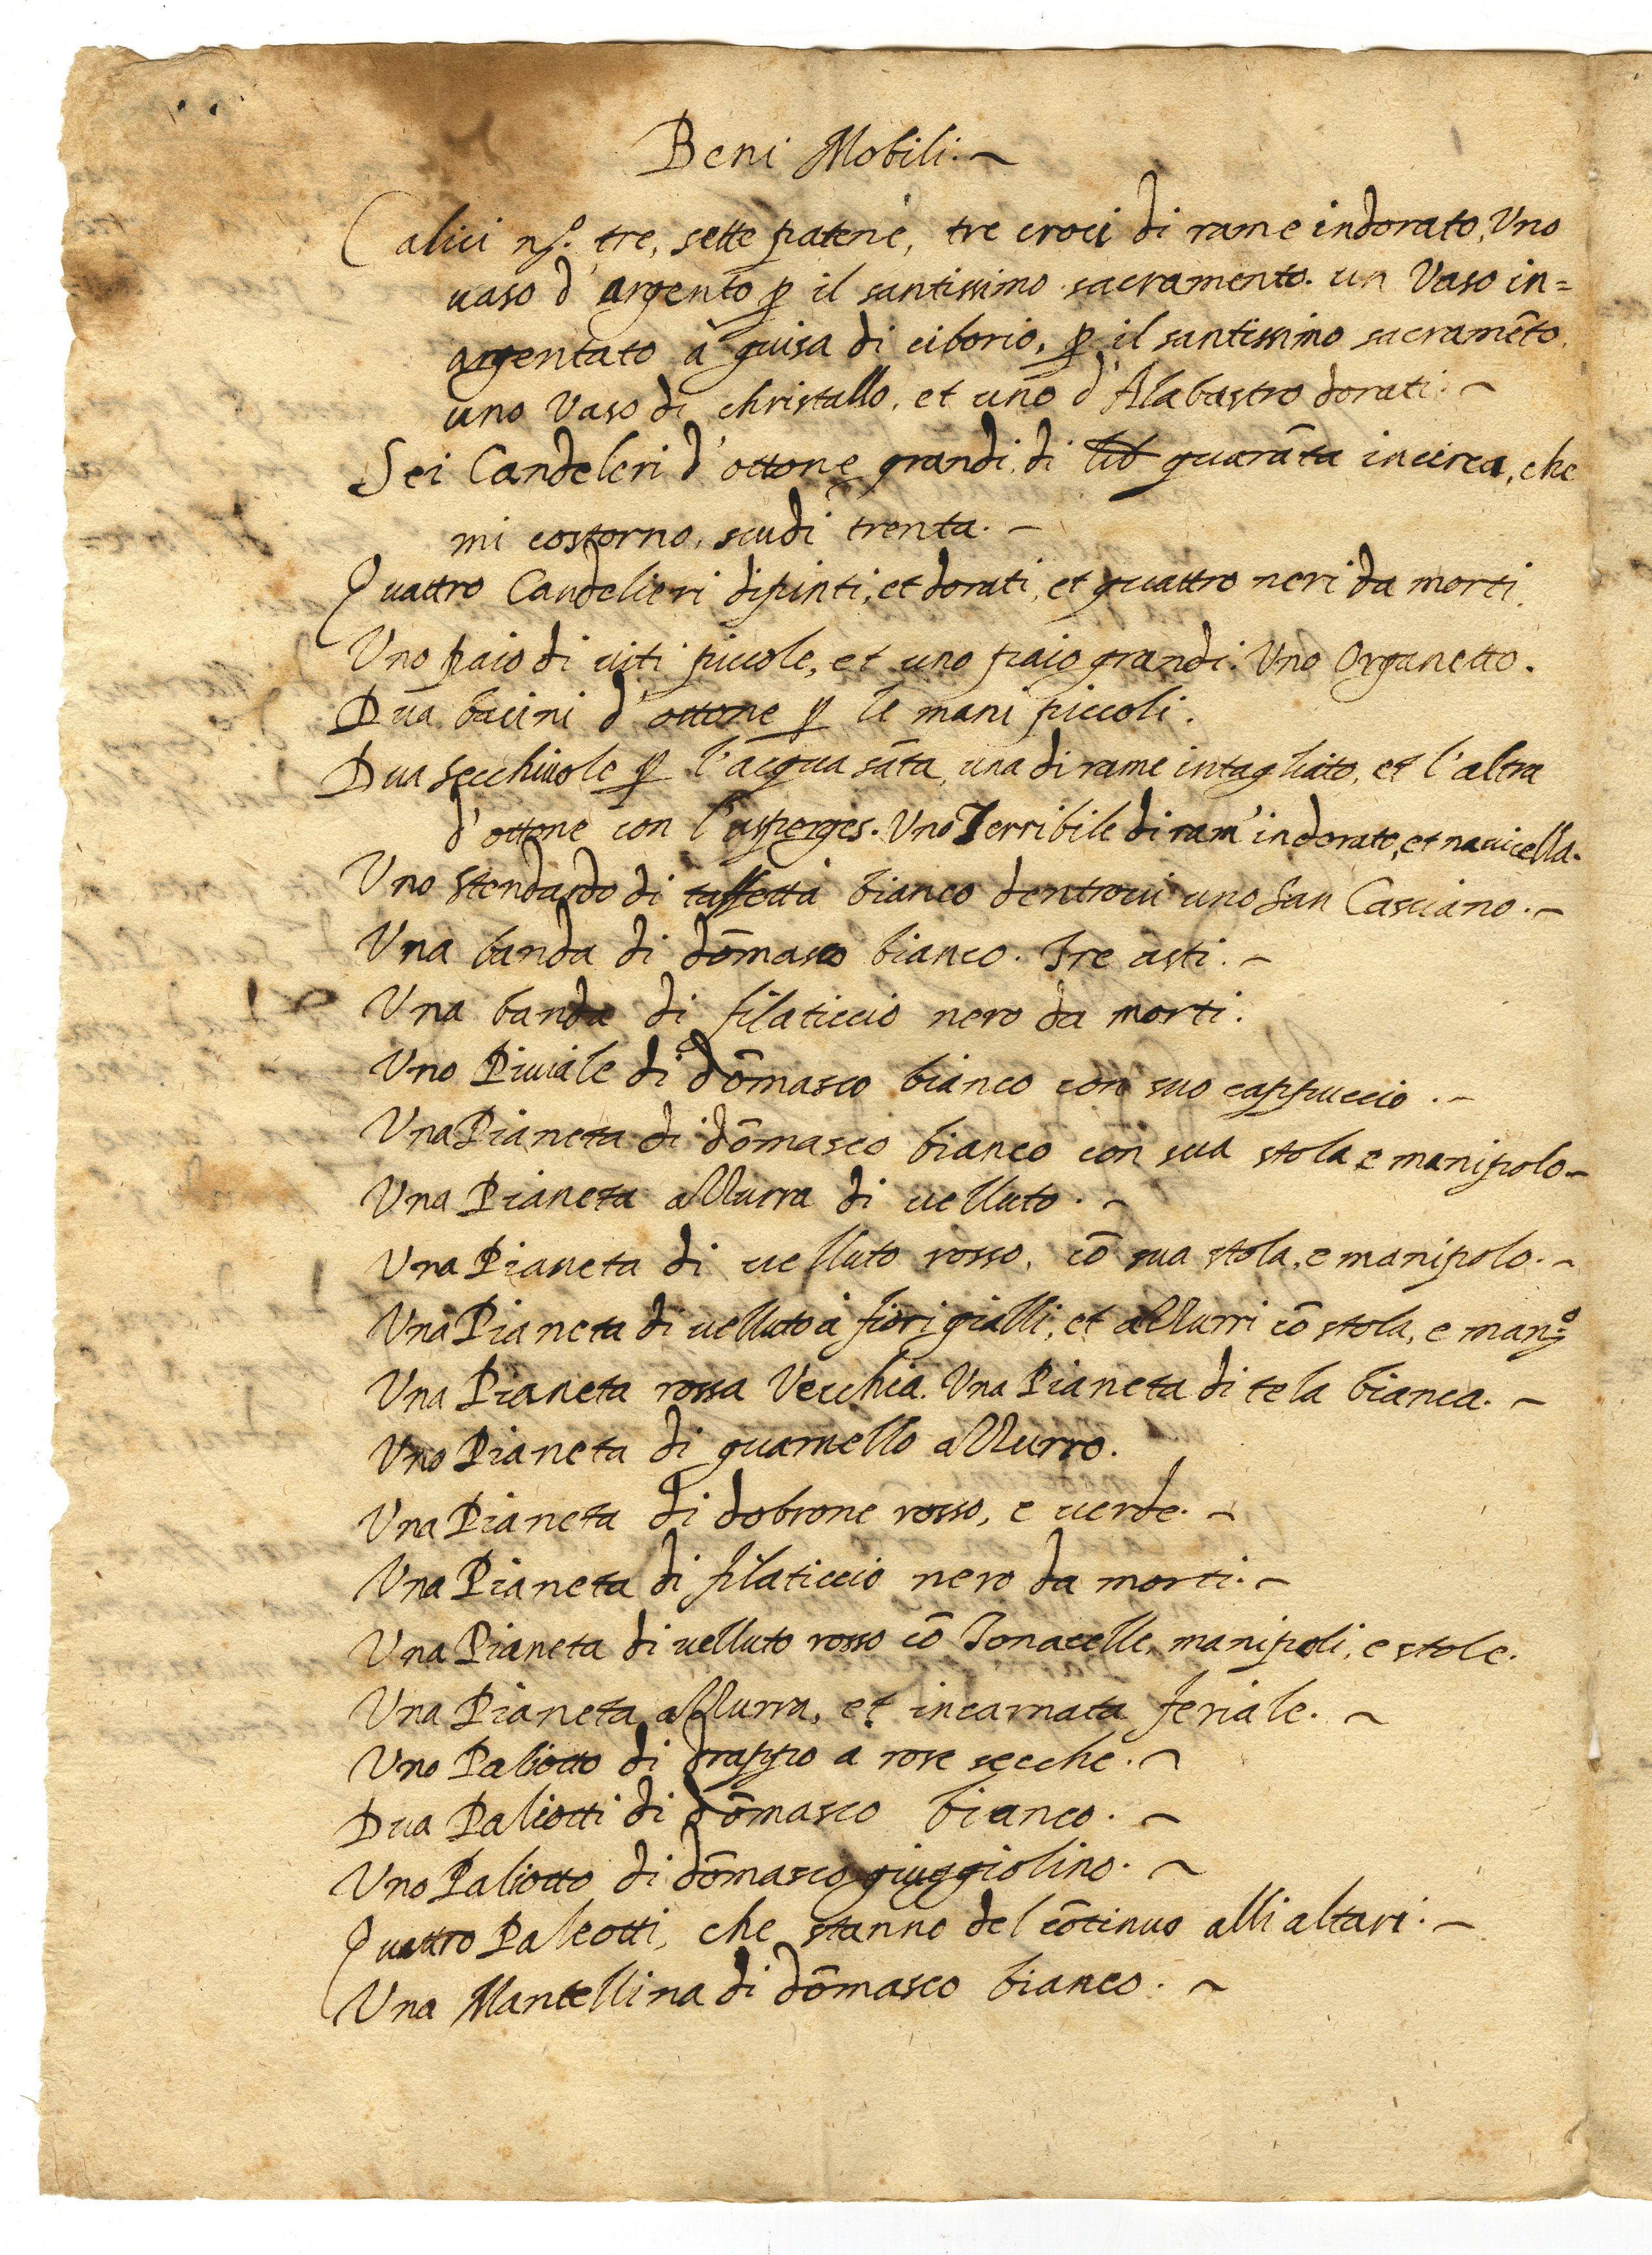 Beni Mobili.~
Calici nº. tre, sette patene, tre croci di rame indorato, Uno
uaso d'argento ꝑ il santissimo sacramento. un Vaso in=
argentato à guisa di ciborio, ꝑ il santissimo sacramẽto.
uno Vaso di christallo, et uno d'Alabastro dorati.~
Sei Candeleri d'ottone grandi, di lib quarãta incirca, che
mi costorno, scudi trenta.~
Quattro Candelieri dipinti, et dorati, et quattro neri da morti.
Uno paio di uiti piccole, et uno paio grandi. Uno Organetto.
Dua bacini d'ottone ꝑ le mani piccoli.
Dua secchiuole ꝑ l'acqua sãta, una di rame intagliato, et l'altra
d'ottone con l'asperges. Uno Terribile di ram' indorato, et nauicella.
Uno stendardo di taffetta bianco dentroui uno San Casciano.~
Una banda di dõmasco bianco. Tre asti.~
Una banda di filaticcio nero da morti.
Uno Piuiale di dõmasco bianco con suo cappuccio.~
Una Pianeta di dõmasco bianco con sua stola e manipolo~
Una Pianeta azzurra di uelluto.~
Una Pianeta di uelluto rosso, cõ sua stola, e manipolo.~
Una Pianeta di uelluto à fiori gialli, et azzurri cõ stola, e manº
Una Pianeta rossa Vecchia. Una Pianeta di tela bianca.~
Uno Pianeta di guarnello azzurro.
Una Pianeta di dobrone rosso, e uerde.~
Una Pianeta di filaticcio nero da morti.~
Una Pianeta di uelluto rosso cõ Tonacelle, manipoli, e stole.
Una Pianeta azzurra, et incarnata feriale.~
Uno Paliotto di drappo a rose secche.~
Dua Paliotti di dõmasco bianco.~
Uno Paliotto di dõmasco giuggiolino.~
Quattro Paleotti, che stanno del cõtinuo alli altari.~
Una Mantellina di dõmasco bianco.~